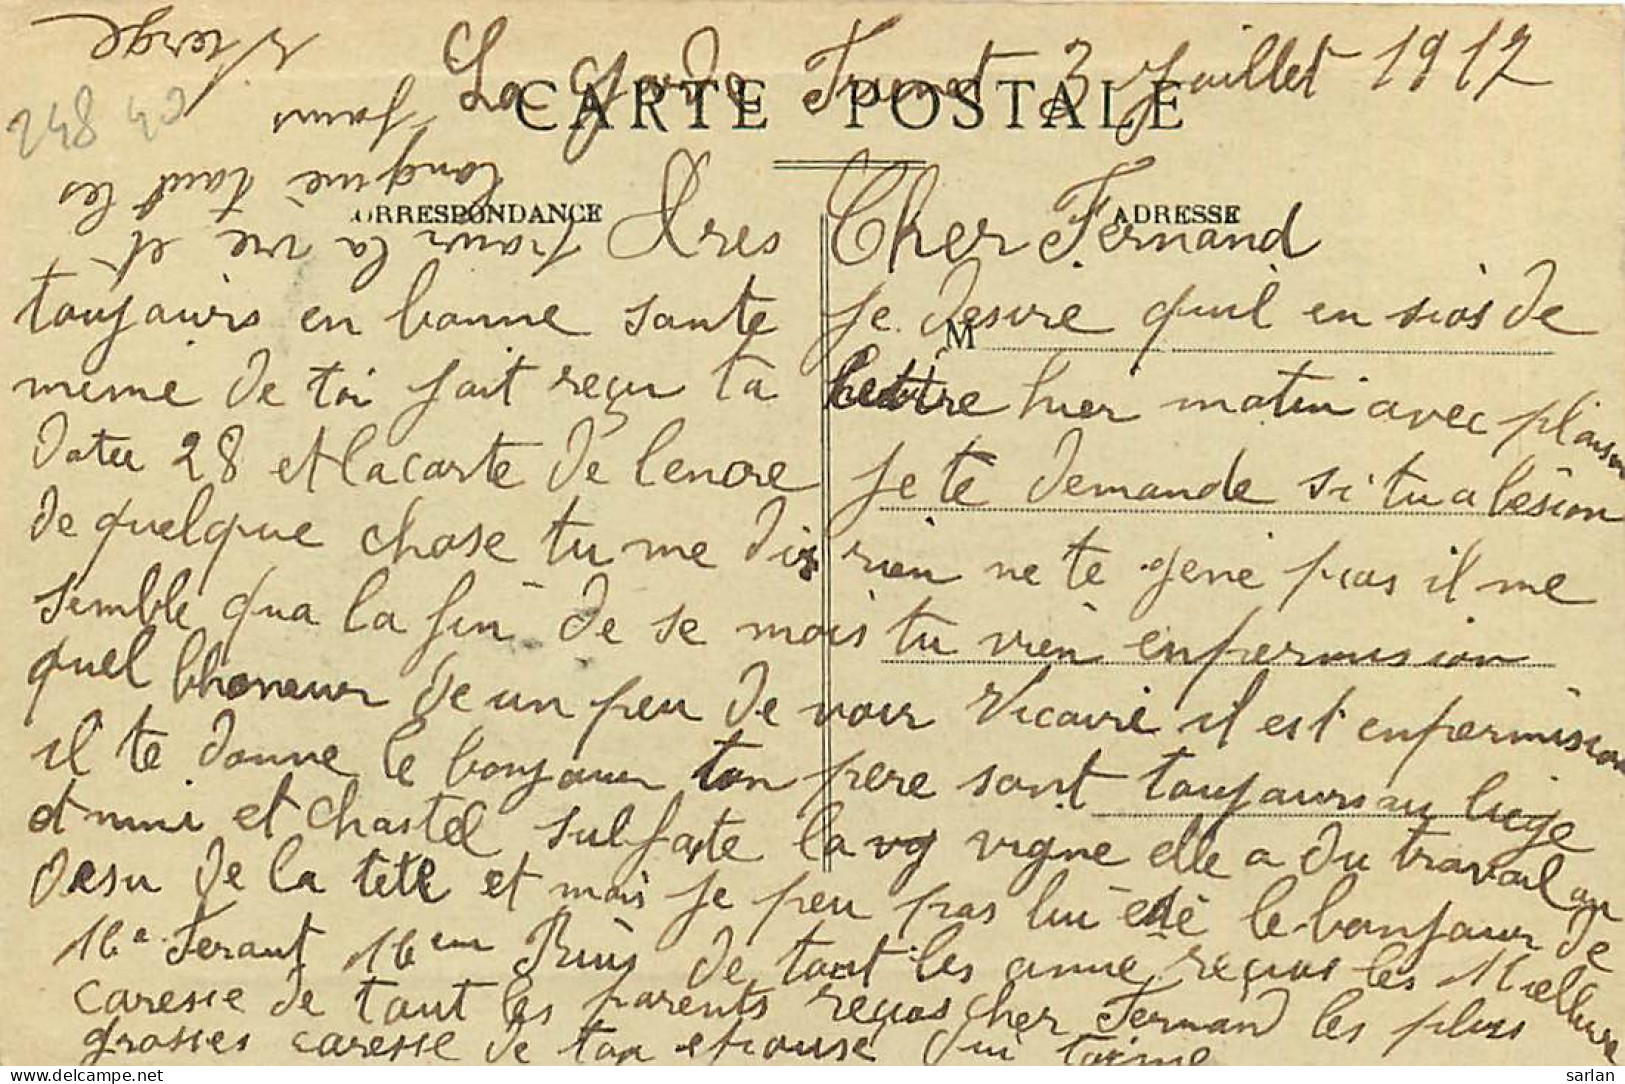 La Garde Freinet 3 Juillet 1917
CARTE POSTALE
CORRESPONDANCE
ADRESSE
M
Tres Cher Fernand
je desire quil en sios de
toujours en bonne sante
meme de toi jait reçu ta lettre hier matin avec plaisir
datee 28 et la carte de lencre je te demande si tu a bésion
de quelque chose tu me dis rien ne te gene pas il me
semble qua la fin de se mois tu vien enpermision
quel bhoneur de un peu de voir Vicaire il est enpermision
il te donne le bonjour ton pere sont toujours au liege
et chastel sulfate la vg vigne elle a du travail au
desu de la tete et mois je peu pas lui edé le bonjour de
de tout les anne reçois les Mellieure
caresse de tout les parents reçois cher Fernand les plus
grosses caresse de ton epouse qui taime
pour la vie et
longue tout les
jours
Vierge
248 40
sarlan